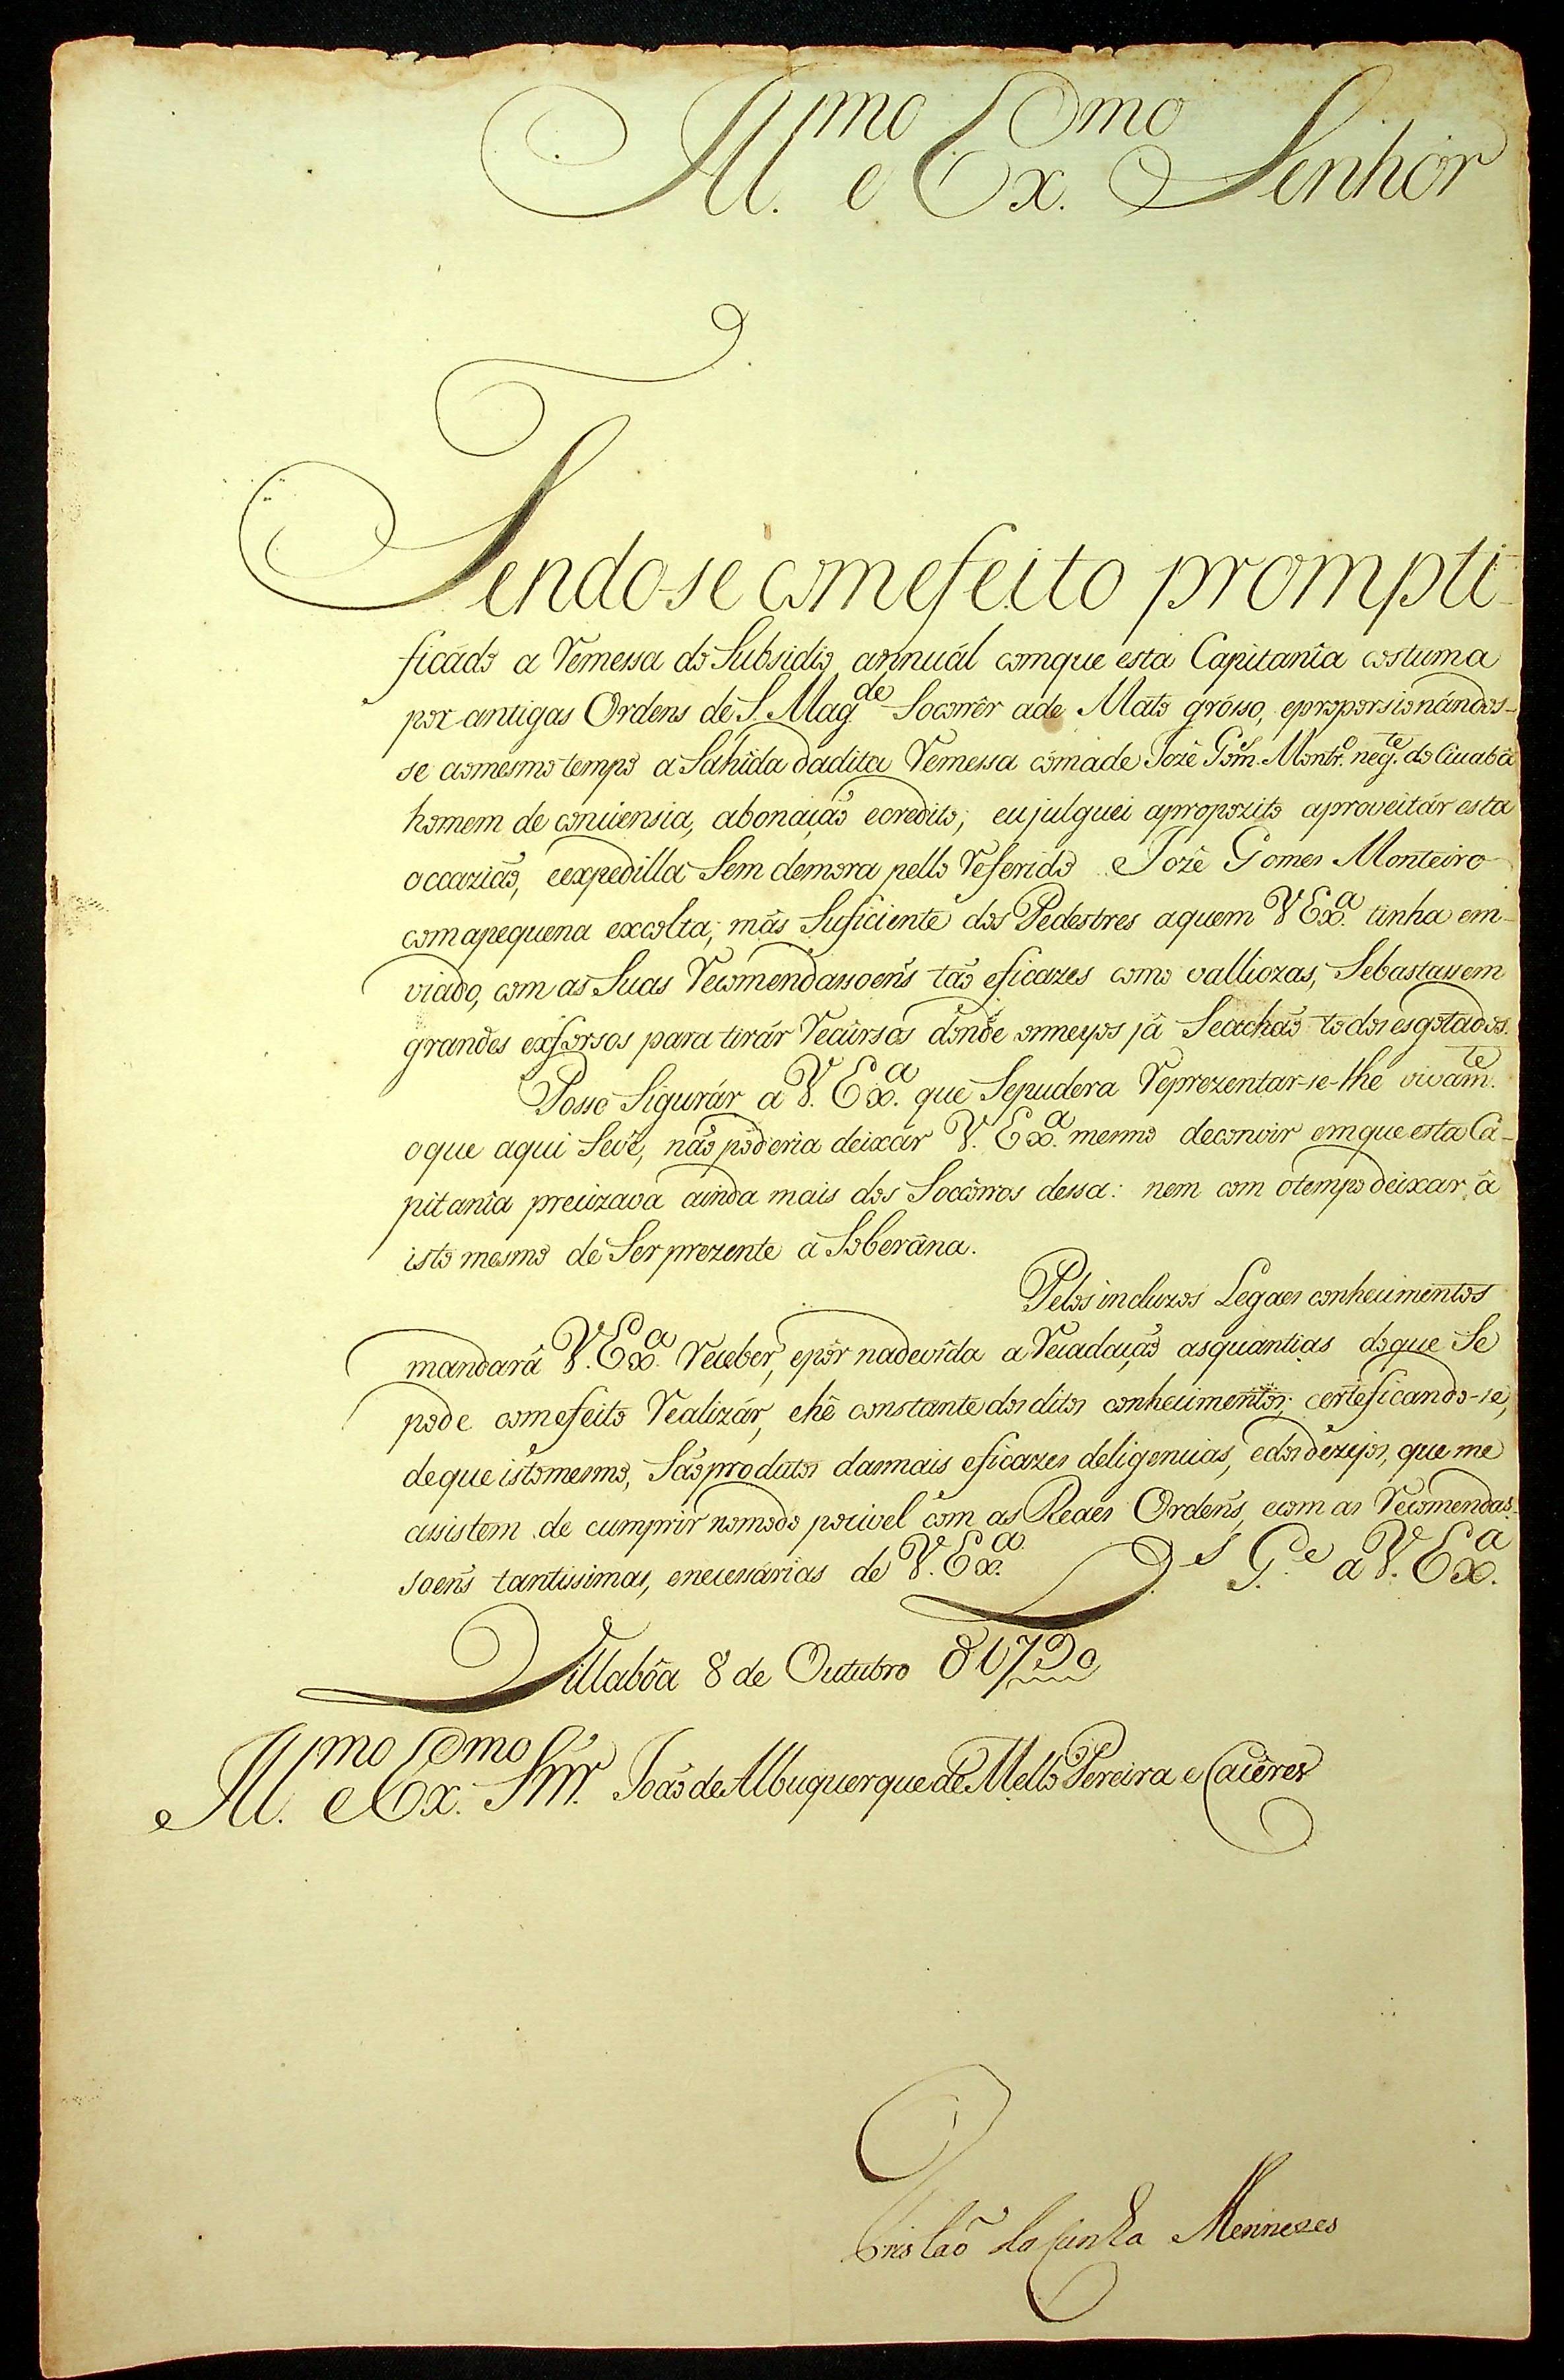 Ill.mo e Ex.mo Senhor
Tendo-se comefeito prompti-
ficádo a Remessa do Subsidio annuál comque esta Capitanîa costuma
por antigas Ordens de S. Mag.de Socorrêr ade Mato gróso, eproporsionándos-
se aomesmo tempo a Sahîda dadita Remessa cómade Jozê Gom.s Montr.o neg.te do Cuiabâ
homem de conciensia, abonaçaõ ecredito; eujulguei apropozito aproveitár esta
occaziaõ, eexpedilla Sem demora pello Referido Jozê Gomes Monteiro
comapequena excolta, mâs Suficiente dos Pedestres aquem V Ex.a tinha em-
viado, com as Suas Recomendassoens taõ eficazes como valliozas, Sebastassem
grandes exforsos para tirár Recursos donde osmeyos jâ Seachaõ todos esgotados.
Posso Sigurár a V. Ex.a que Sepudera Reprezentar-se-lhe vivam.te
oque aqui Sevê, naõ poderia deixár V. Ex.a mesmo deconvir emque esta Ca-
pitanîa precizava ainda mais dos Socórros dessa: nem com otempo deixar â
isto mesmo de Ser prezente a Soberâna.
Pelos incluzos Legaes conhecimentos
mandarâ V. Ex.a Receber, epôr nadevîda aRecadaçaõ asquantias doque Se
pode comefeito Realizár, ehê constante dos ditos conhecimentos; certeficando-se,
deque istomesmo, Saõ produtos dasmais eficazes deligencias, edos dezejos, que me
assistem de cumprir nomodo pocivel com as Reaes Ordens, ecom as Recomendas-
soens tantissimas, enecessárias de V. Ex.a D.s G.e a V. Ex.a
Villabôa 8 de Outubro d 1790
Ill.mo e Ex.mo Snr. Joaõ de Albuquerque de Mello Pereira e Cacêres
Tristaõ da Cunha Mennezes